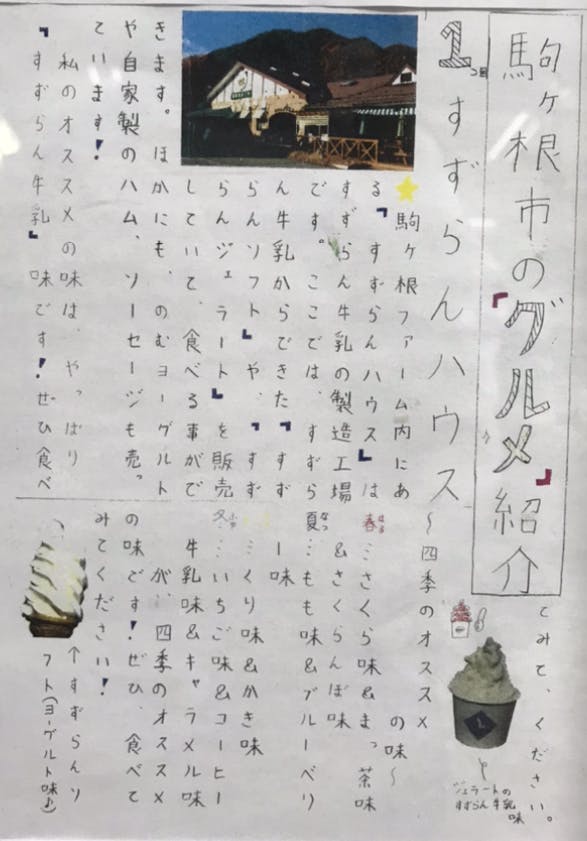 駒ヶ根市の『グルメ』紹介
1つ目 すずらんハウス
★駒ヶ根ファーム内にあ
る『すずらんハウス』は
すずらん牛乳の製造工場
です。ここでは、すずら
ん牛乳からできた『すず
らんソフト』や、『すず
らんジェラート』を販売
していて、食べる事がで
きます。ほかにも、のむヨーグルト
や自家製のハム、ソーセージも売っ
ています!
私のオススメの味は、やっぱり
『すずらん牛乳』味です!ぜひ食べ
てみて、ください。
ジェラートの
すずらん牛乳
味
〜四季のオススメ
の味〜
春はる…さくら味&まっ茶味
&さくらんぼ味
夏なつ…もも味&ブルーベリ
ー味
…くり味&かき味
冬ふゆ…いちご味&コーヒー
牛乳味&キャラメル味
が、四季のオススメ
の味です!ぜひ、食べて
みてください!
↑すずらんソ
フト(ヨーグルト味♪)